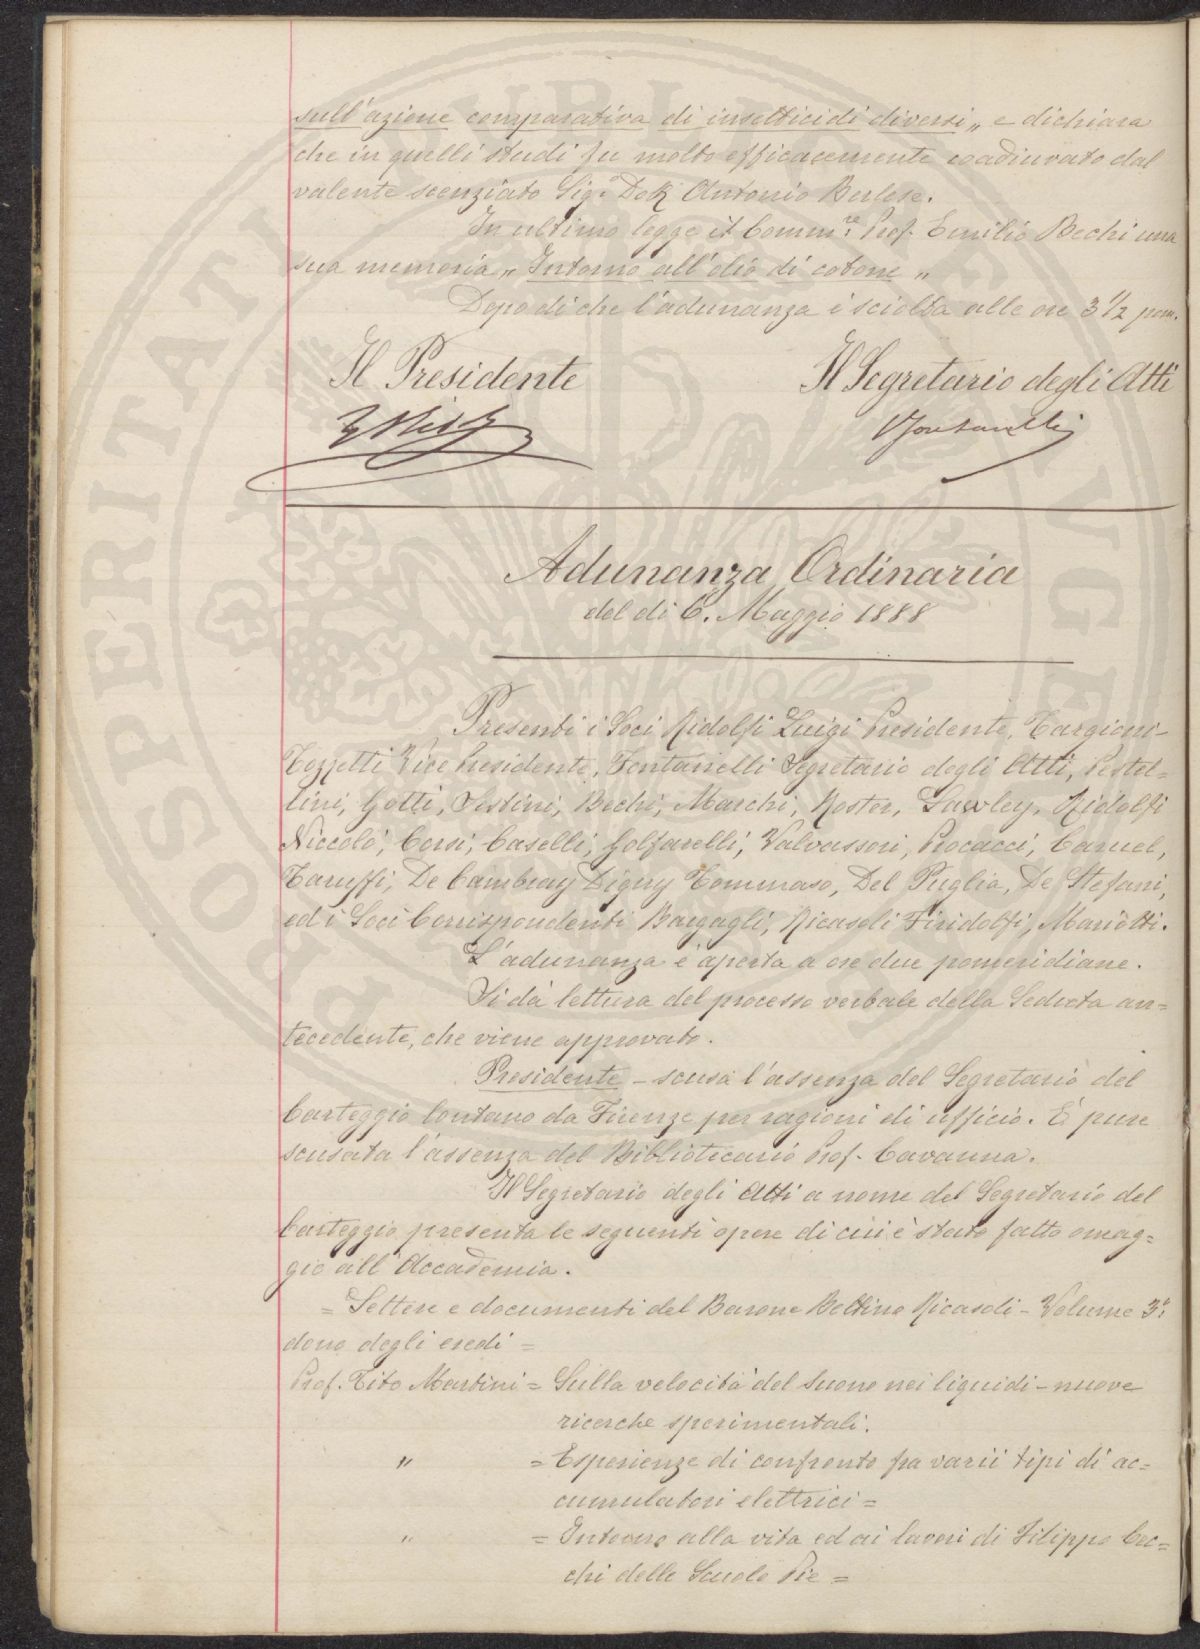 sull'azione comparativa di insetticidi diversi„ e dichiara
che in quelli studi fu molto efficacemente coadiuvato dal
valente scenziato Sigr Dott Antonio Berlese.
In ultimo legge il Commre Prof. Emilio Bechi una
sua memoria „ Intorno all'olio di cotone „
Dopo di che l'adunanza è sciolta alle ore 3 1/2 pom.
Il Presidente Il Segretario degli Atti
VFontanelli
Adunanza Ordinaria
del di 6. Maggio 1888
Presenti i Soci Ridolfi Luigi Presidente, Targioni-
Tozzetti Vice Presidente, Fontanelli Segretario degli Atti, Pestel=
lini, Gotti, Sestini, Bechi, Marchi, Roster, Lawley, Ridolfi
Niccolò, Corsi, Caselli, Golfarelli, Valvassori, Procacci, Caruel,
Taruffi, De Cambray Digny Tommaso, Del Puglia, De Stefani,
ed i Soci Corrispondenti Bargagli, Ricasoli Firidolfi, Mariotti.
L'adunanza è aperta a ore due pomeridiane.
Si dà lettura del processo verbale della Seduta an=
tecedente, che viene approvato.
Presidente - scusa l'assenza del Segretario del
Carteggio lontano da Firenze per ragioni di ufficio. È pure
scusata l'assenza del Bibliotecario Prof. Cavanna.
Il Segretario degli Atti a nome del Segretario del
Carteggio presenta le seguenti opere di cui è stato fatto omag=
gio all'Accademia.
= Lettere e documenti del Barone Bettino Ricasoli - Volume 3°
dono degli eredi =
Prof. Tito Martini = Sulla velocità del suono nei liquidi - nuove
ricerche sperimentali.
„ = Esperienze di confronto fra varii tipi di ac=
cumulatori elettrici =
„ = Intorno alla vita ed ai lavori di Filippo Cec=
chi delle Scuole Pie =
PROSPERITATI PUBLICAE AUGENDAE